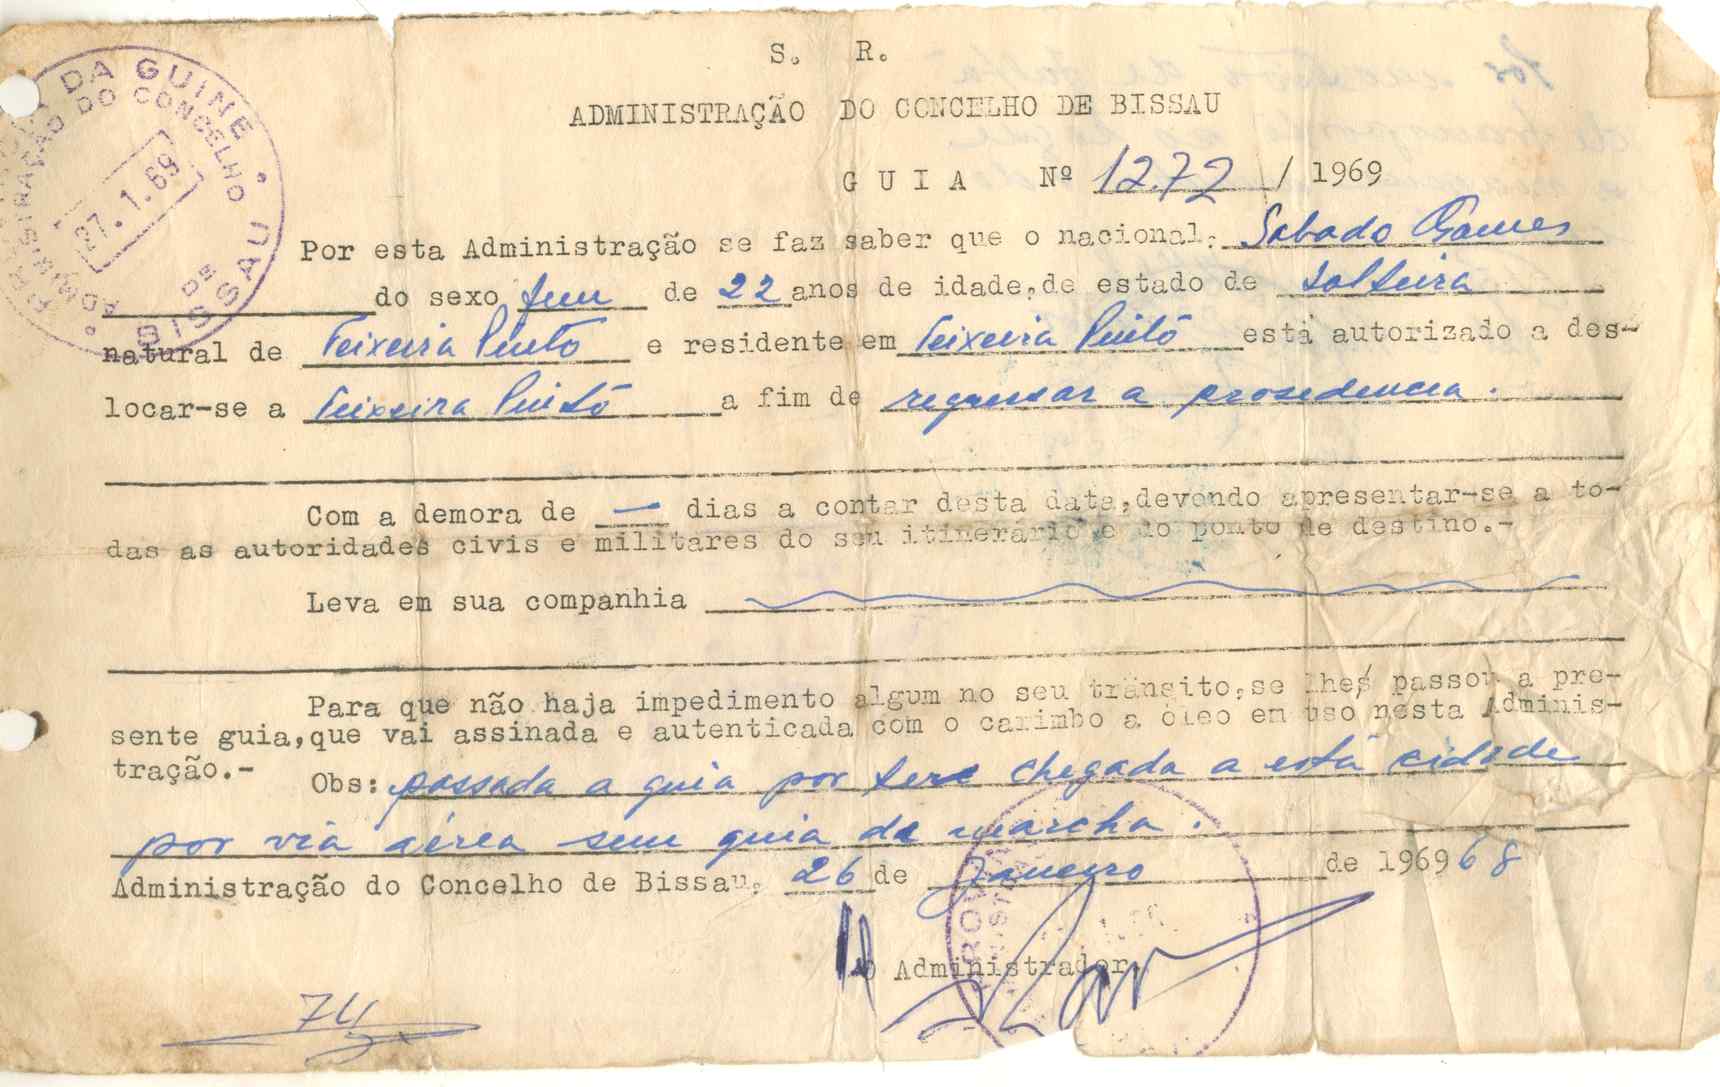 DA GUINÉ
ADMINISTRAÇÃO DO CONCELHO
DE
BISSAU
27.1.69
S. R.
ADMINISTRAÇÃO DO CONCELHO DE BISSAU
GUIA Nº 1272 / 1969
Por esta Administração se faz saber que o nacional, Sabado Gomes
do sexo fem de 22 anos de idade, de estado de solteira
natural de Teixeira Pinto e residente em Teixeira Pinto está autorizado a des-
locar-se a Teixeira Pinto a fim de regressar a prosedencia.
Com a demora de — dias a contar desta data, devendo apresentar-se a to-
das as autoridades civis e militares do seu itinerário e do ponto de destino.-
Leva em sua companhia
Para que não haja impedimento algum no seu trânsito, se lhes passou a pre-
sente guia, que vai assinada e autenticada com o carimbo a óleo em uso nesta Adminis-
tração.-
Obs: passada a guia por ter chegada a esta cidade
por via aérea sem guia de marcha.
Administração do Concelho de Bissau, 26 de Janeiro de 196968
O Administrador,
74